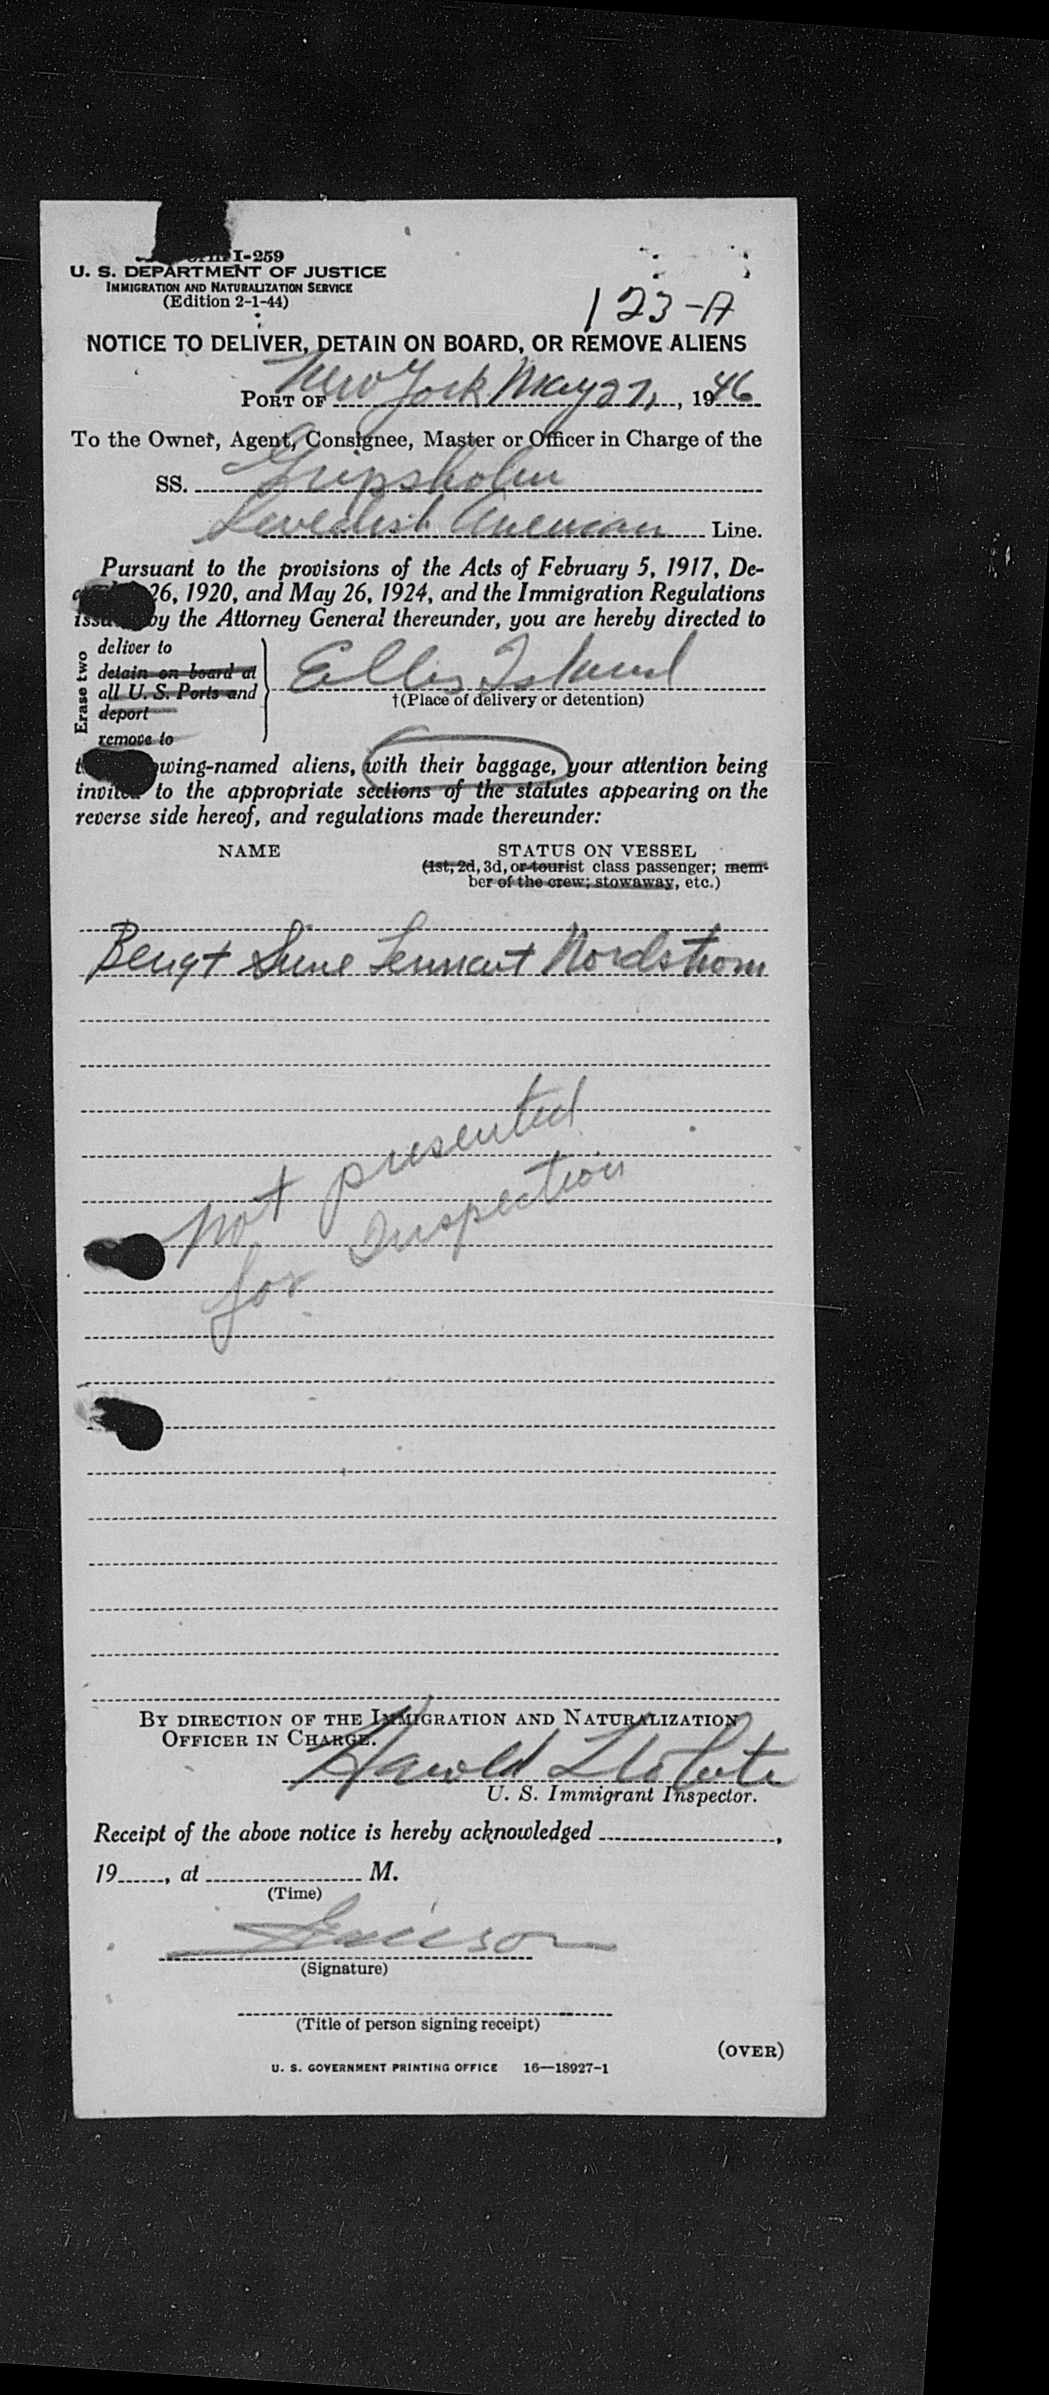 I-259
U. S. DEPARTMENT OF JUSTICE
IMMIGRATION AND NATURALIZATION SERVICE
(Edition 2-1-44)
123-A
NOTICE TO DELIVER, DETAIN ON BOARD, OR REMOVE ALIENS
PORT OF New York May 27, , 1946
To the Owner, Agent, Consignee, Master or Officer in Charge of the
SS. Gripsholm
Swedish American Line.
Pursuant to the provisions of the Acts of February 5, 1917, De-
26, 1920, and May 26, 1924, and the Immigration Regulations
by the Attorney General thereunder, you are hereby directed to
Erase two
deliver to
detain on board at
all U. S. Ports and
deport
remove to
Ellis Island
†(Place of delivery or detention)
aliens, with their baggage, your attention being
invited to the appropriate sections of the statutes appearing on the
reverse side hereof, and regulations made thereunder:
NAME STATUS ON VESSEL
(1st, 2d, 3d, or tourist class passenger; mem-
ber of the crew; stowaway, etc.)
Bengt Sune Lennart Nordstrom
not presented
for Inspection
BY DIRECTION OF THE IMMIGRATION AND NATURALIZATION
OFFICER IN CHARGE.
Harold
U. S. Immigrant Inspector.
Receipt of the above notice is hereby acknowledged ,
19 , at M.
(Time)
(Signature)
(Title of person signing receipt)
(OVER)
U. S. GOVERNMENT PRINTING OFFICE 16—18927-1